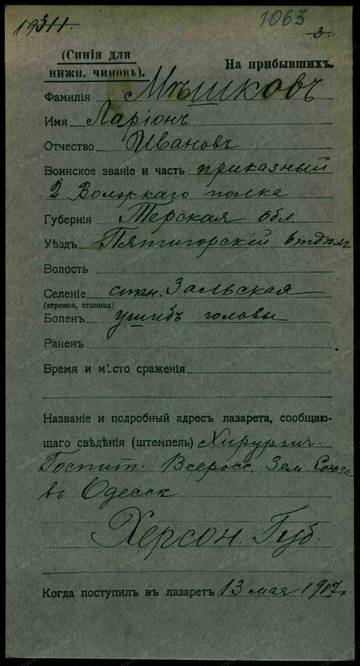 1063
(Синія для нижн. чиновъ).
На прибывшихъ.
Фамилія Мѣшковъ
Имя Ларіонъ
Отчество Ивановъ
Воинское званіе и часть приказный
2 Волжскаго полка
Губернія Терская обл
Уѣздъ Пятигорскій отдѣлъ
Волость
Селеніе стан. Зальская
(деревня, станица)
Боленъ ушибъ головы
Раненъ
Время и мѣсто сраженія
Названіе и подробный адресъ лазарета, сообщаю-
щаго свѣдѣнія (штемпель) Хирургич.
Госпит. Всеросс. Зем. Союза
въ Одессѣ
Херсон. Губ.
Когда поступилъ въ лазаретъ 13 мая 1917